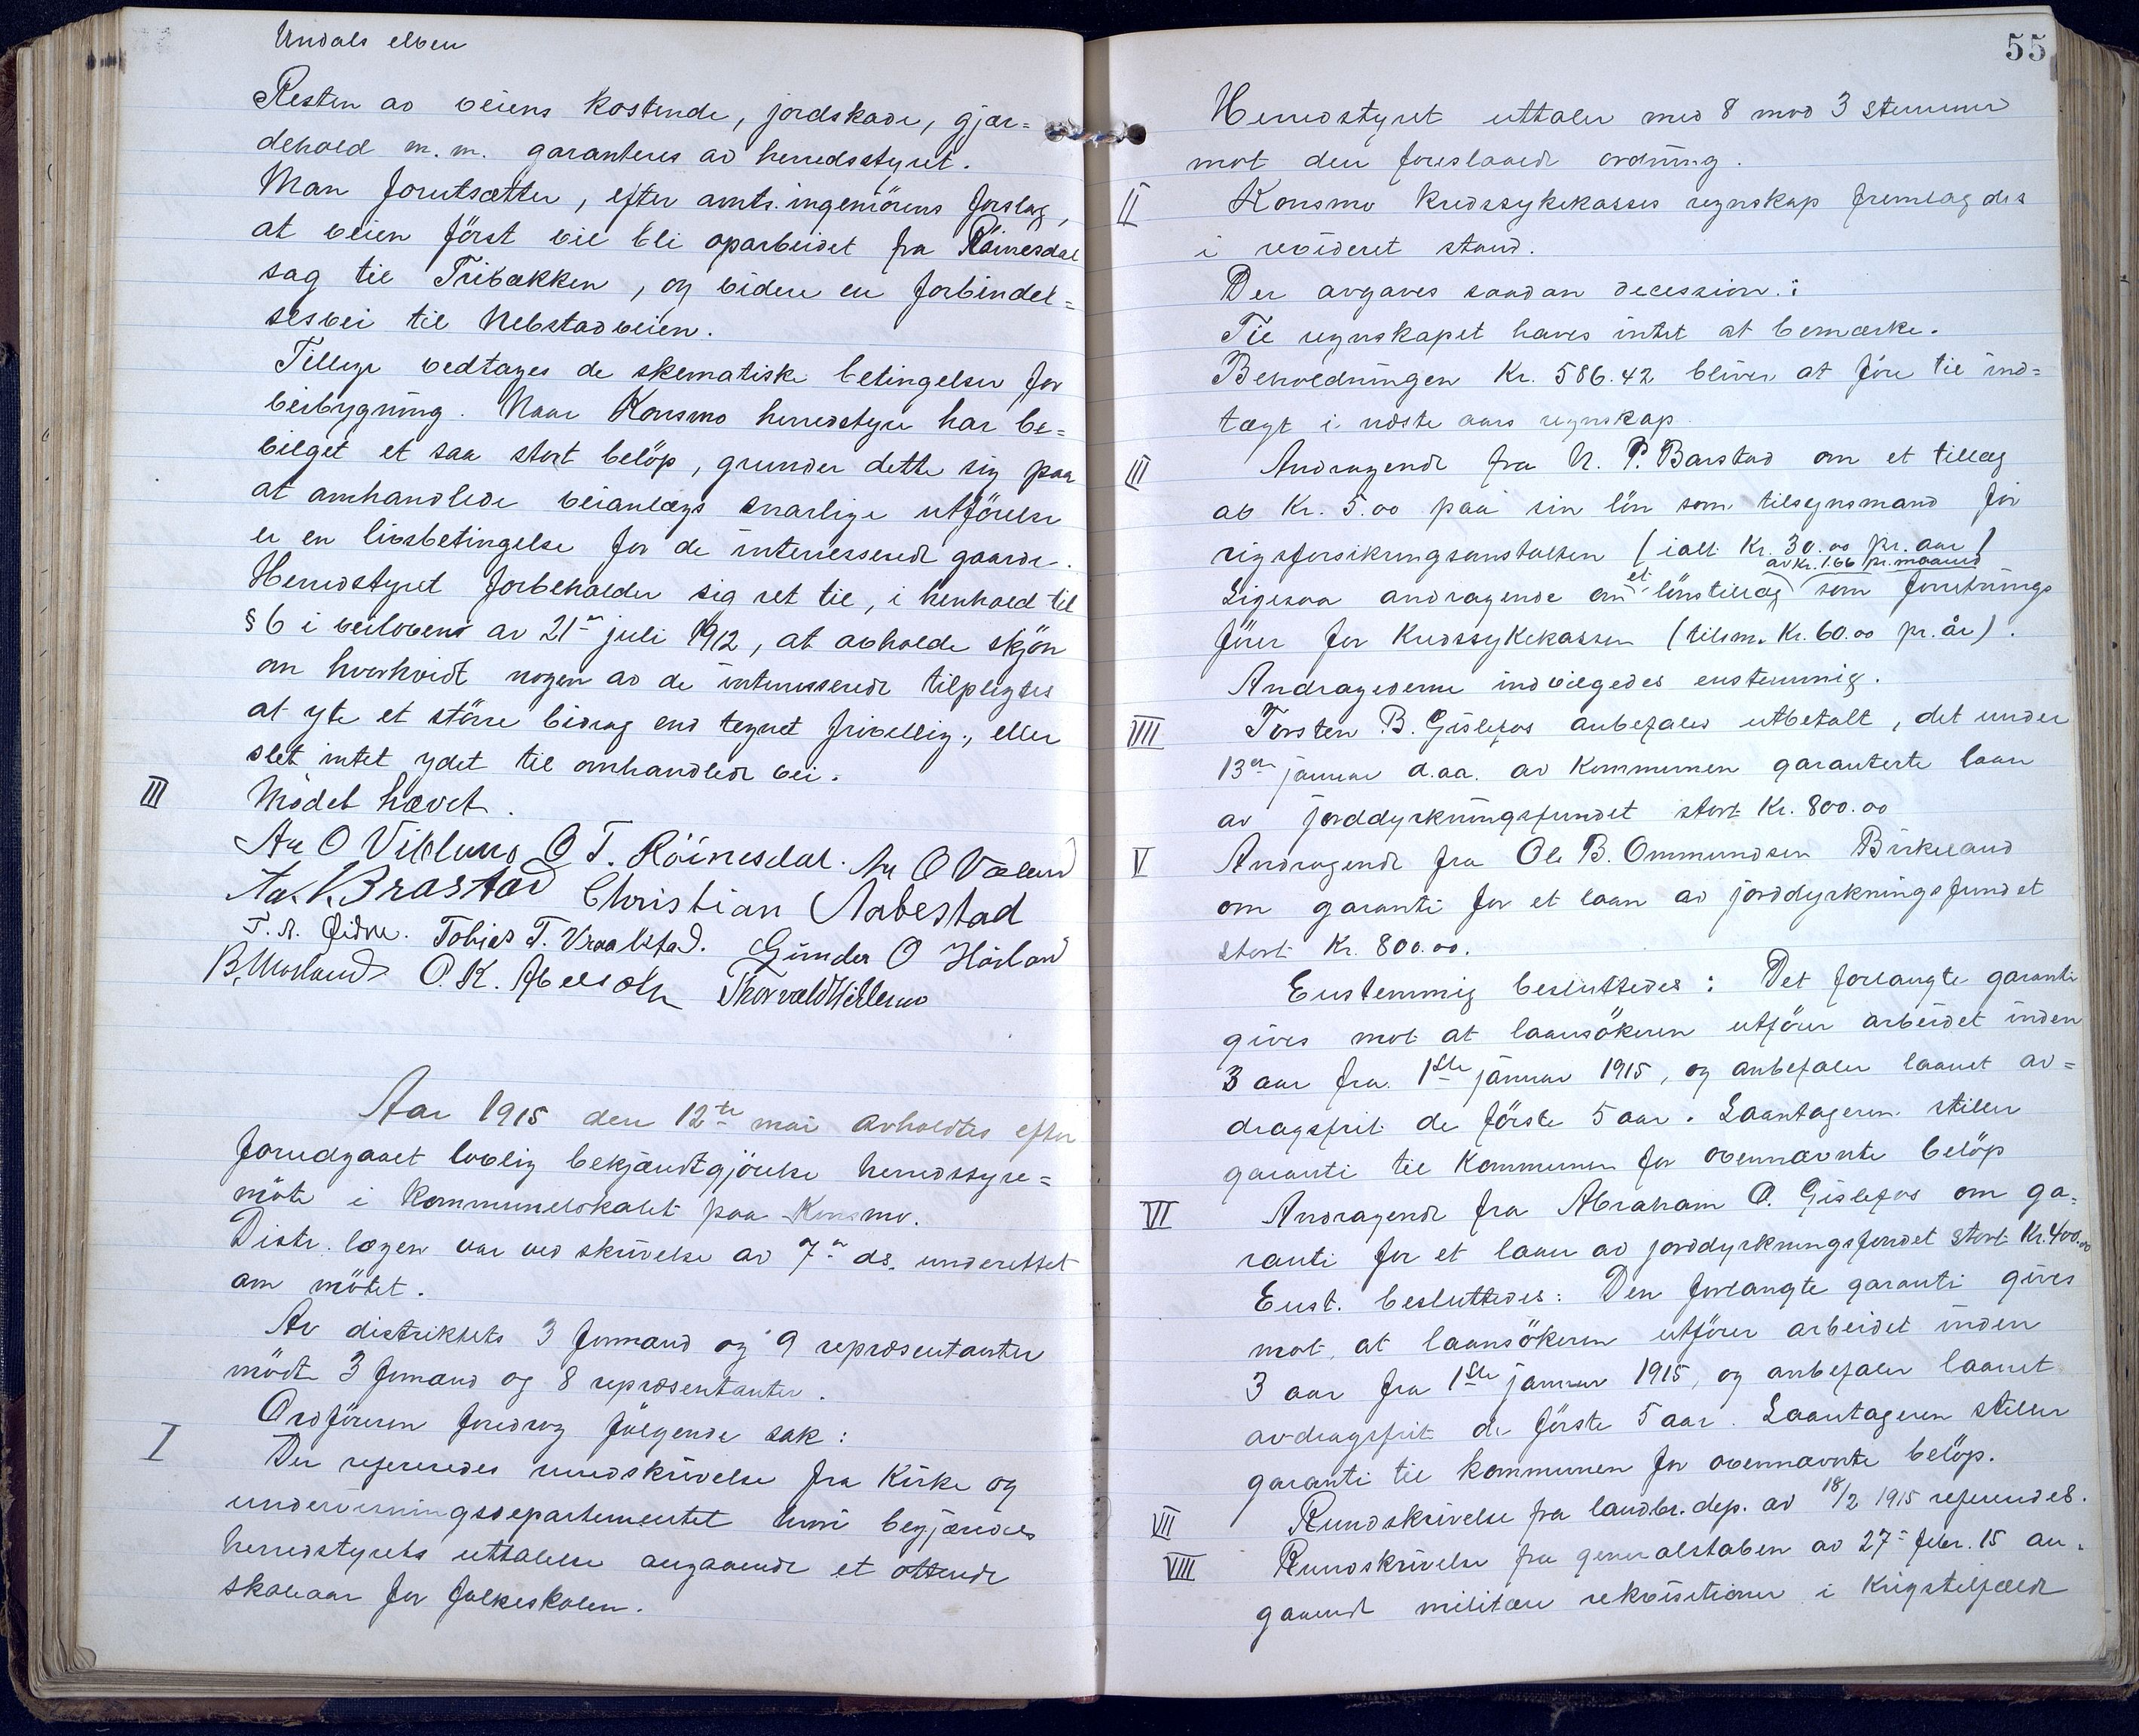 Undals elven
Resten av veiens kostende, jordskade, gjær=
dehold m. m. garanteres av herredsstyret.
Man forutsætter, efter amts.ingeniörens forslag,
at veien först vil bli oparbeidet fra Röinesdal
sag til Tribækken, og videre en forbindel=
sesvei til Nebstadveien.
Tillige vedtages de skematiske betingelser for
veibygning. Naar Konsmo herredstyre har be=
vilget et saa stort belöp, grunder dette sig paa
at omhandlede veianlægs snarlige utförelse
er en livsbetingelse for de interesserede gaarde.
Herredstyret forbeholder sig ret til, i henhold til
§ 6 i veiloven av 21de juli 1912, at avholde skjön
om hvorvidt nogen av de interesserede tilpligtes
at yte et större bidrag end tegnet frivillig, eller
slet intet ydet til omhandlede vei.
III Mödet hævet.
An O Viblemo O T. Röinesdal. An O Væland
Aa. K. Brastad Christian Aabestad
T. A. Eidne. Tobias T. Vraalstad. Gunder O Hörland
B. Morland O. K. Abelsoln Thorvald Viblemo
Aar 1915 den 12te mai avholdtes efter
forudgaaet lovlig bekjændtgjörelse herredsstyre=
möte i kommunelokalet paa Konsmo.
Distr. lægen var ved skrivelse av 7de ds. underettet
om mötet.
Av distriktets 3 formænd og 9 repræsentanter
mödte 3 formænd og 8 repræsentanter.
Ordföreren foredrog fölgende sak:
I Der refereredes rundskrivelse fra Kirke og
undervisningsdepartementet hvori begjæredes
herredstyrets uttalelse angaaende et ottende
skoleaar for folkeskolen.
55
Herredstyret uttaler med 8 mod 3 stemmer
mot den foreslaaede ordning.
II Konsmo kredssykekasses regnskap fremlagdes
i revideret stand.
Der avgaves saadan decession.:
Til regnskapet haves intet at bemærke.
Beholdningen Kr. 586.42 bliver at före til ind=
tægt i næste aars regnskap
III Andragende fra N. P. Barstad om et tillæg
av Kr. 5.00 paa sin lön som tilsynsmand for
rigsforsikringsanstalten (ialt Kr. 30.00 pr. aar)
av Kr. 1.66 pr. maaned
Ligesaa andragende om et lönstillæg som forretnings
förer for Kredssykekassen (tilsm. Kr. 60.00 pr. år).
Andragederne indvilgedes enstemmig.
VIII Torsten B. Gislefos anbefales utbetalt, det under
13de januar d.aa. av kommunen garanterte laan
av jorddyrkningsfundet stort Kr. 800.00
V Andragende fra Ole B. Ommundsen Birkeland
om garanti for et laan av jorddyrkningsfundet
stort Kr. 800.00.
Enstemmig besluttedes: Det forlangte garanti
gives mot at laansökeren utförer arbeidet inden
3 aar fra 1ste januar 1915, og anbefaler laanet av=
dragsfrit de förste 5 aar. Laantageren stiller
garanti til kommunen for ovennævnte belöp
VI Andragende fra Abraham O. Gislefos om ga=
ranti for et laan av jorddyrkningsfondet stort Kr. 400.00
Enst. besluttedes: Den forlangte garanti gives
mot, at laansökeren utförer arbeidet inden
3 aar fra 1ste januar 1915, og anbefaler laanet
avdragsfrit de förste 5 aar. Laantageren stiller
garanti til kommunen for ovennævnte belöp.
VII Rundskrivelse fra landbr. dep. av 18/2 1915 refereredes.
VIII Rundskrivelse fra generalstaben av 27de febr. 15 an=
gaaende militære rekvisitioner i Krigstilfælde